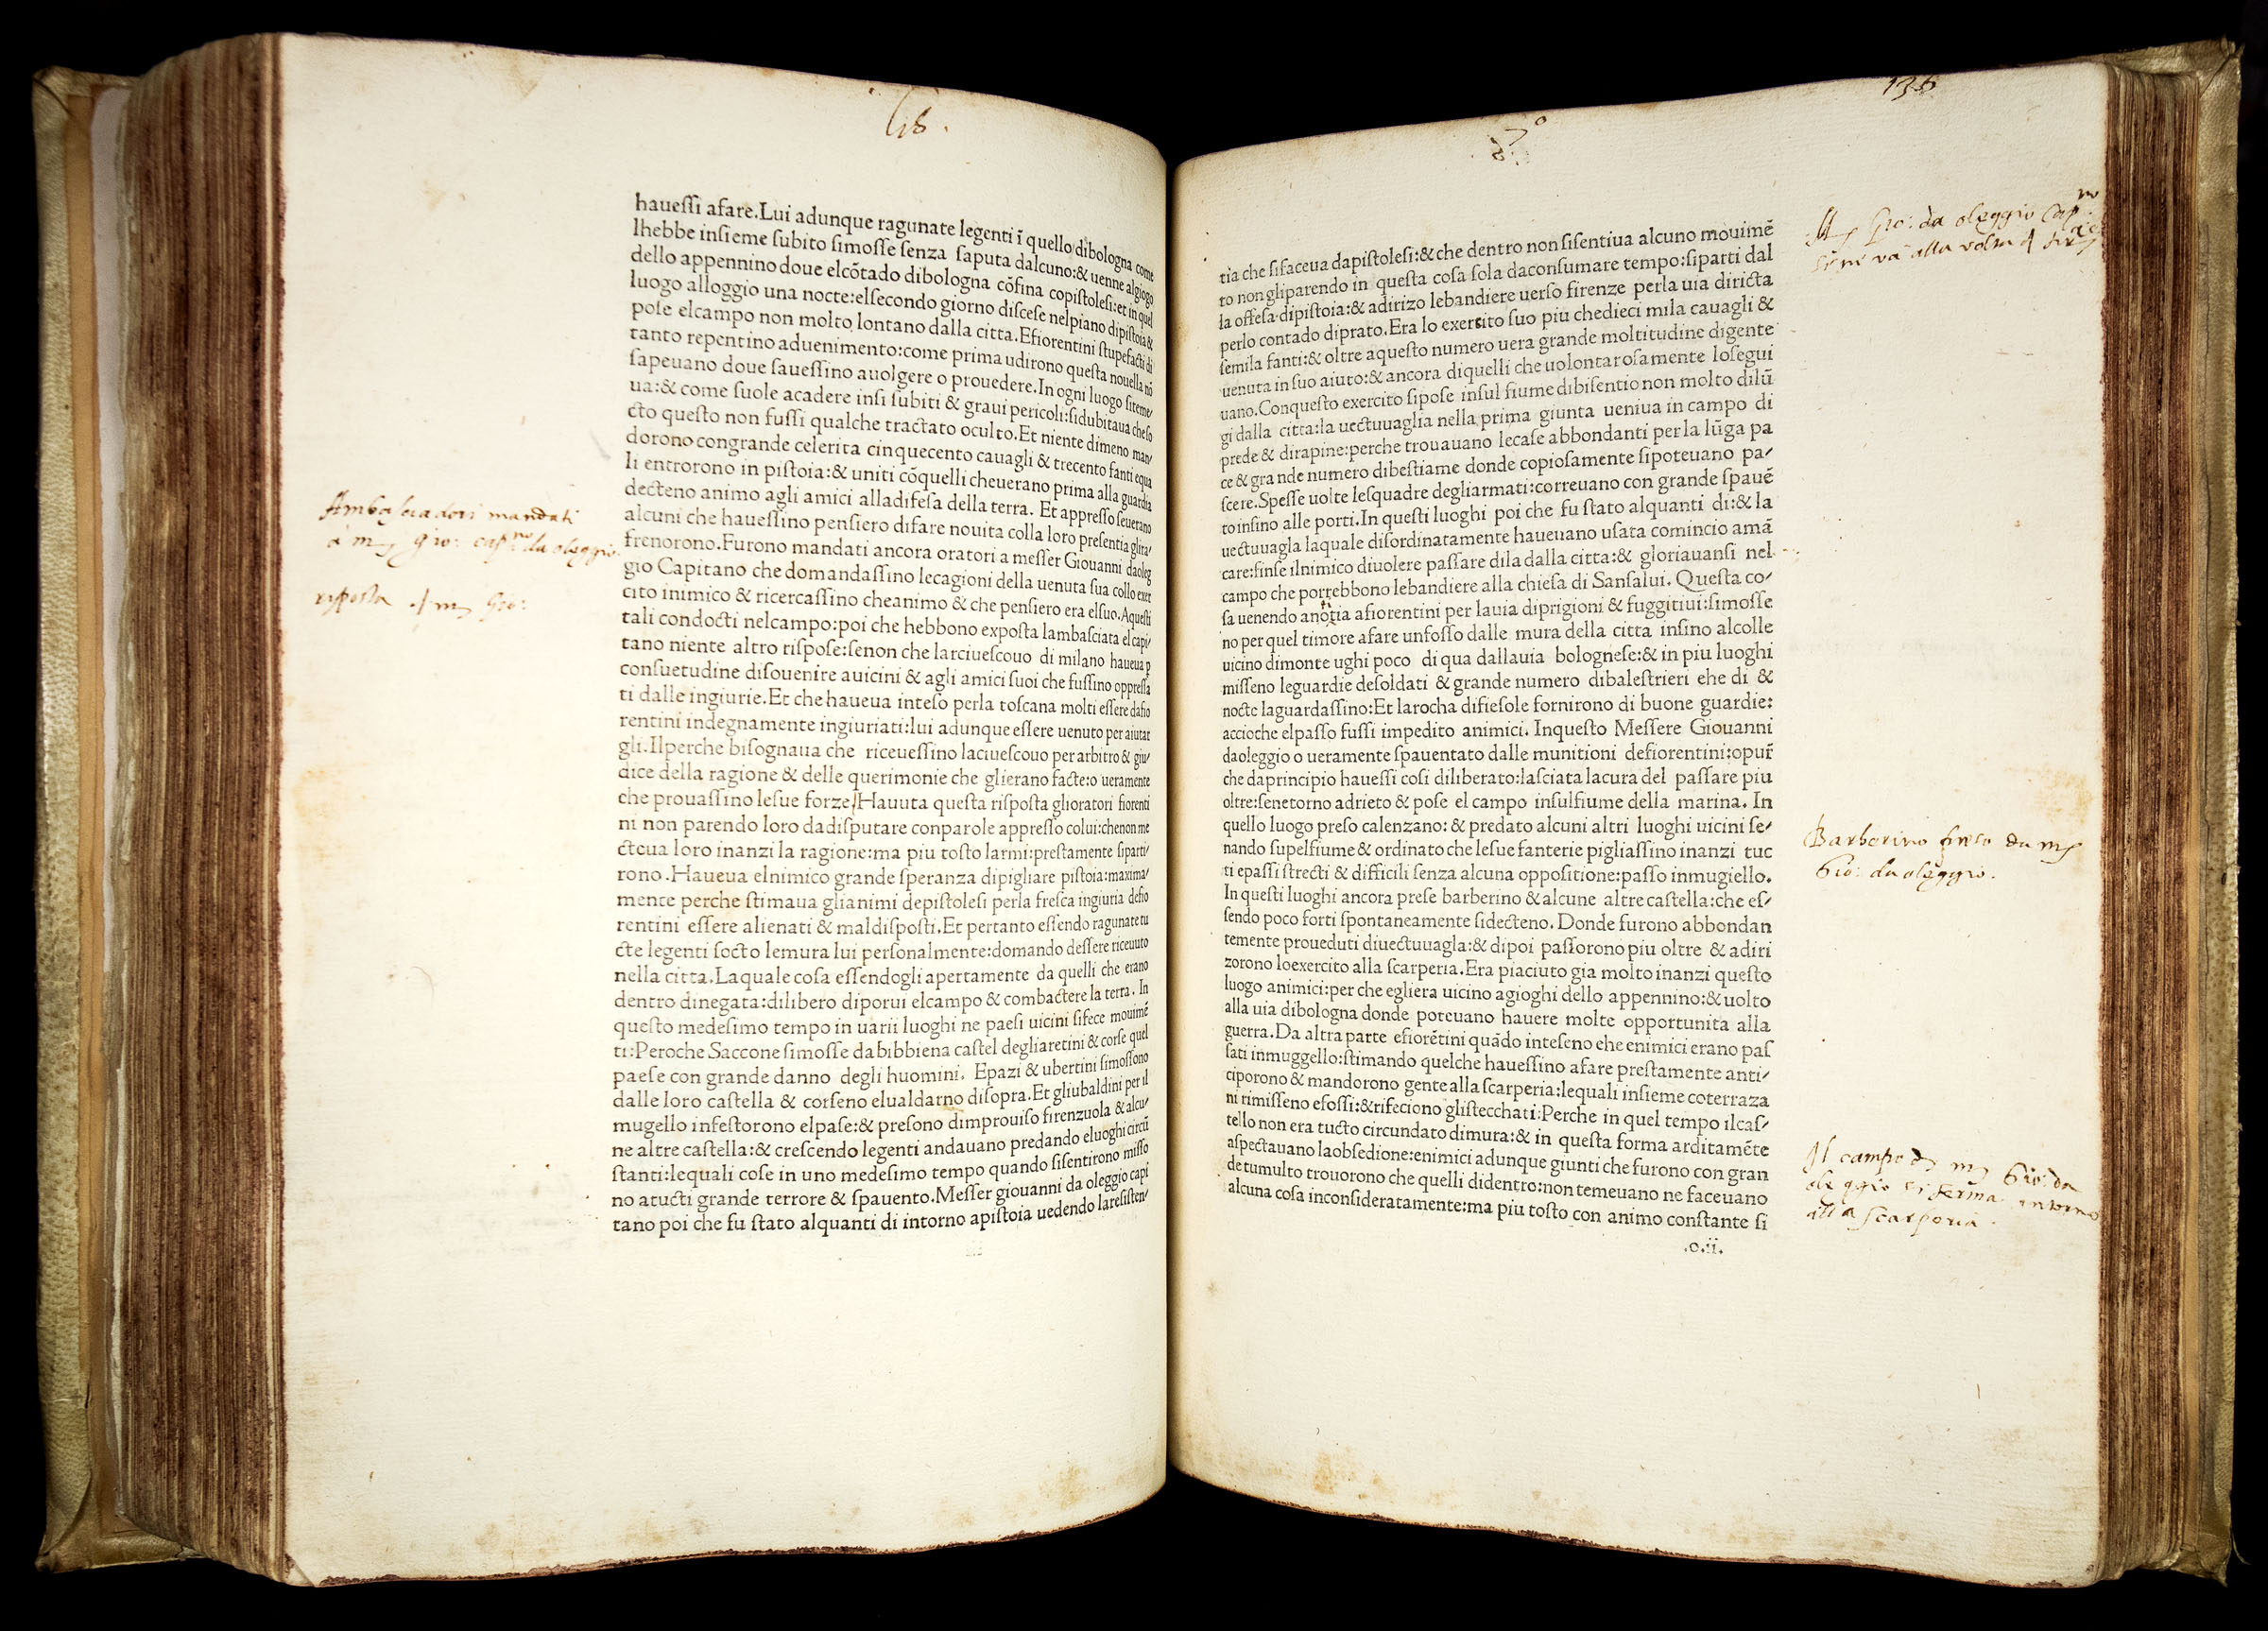 lib.
haueſſi afare.Lui adunque ragunate legenti ī quello dibologna come
lhebbe inſieme ſubito ſimoſſe ſenza ſaputa dalcuno:& uenne algiogo
dello appennino doue elcōtado dibologna cōfina copiſtoleſi:et in quel
luogo alloggio una nocte:elſecondo giorno diſceſe nelpiano dipiſtoia &
poſe elcampo non molto lontano dalla citta.Efiorentini ſtupefacti di
tanto repentino aduenimento:come prima udirono queſta nouella nō
ſapeuano doue ſaueſſino auolgere o prouedere.In ogni luogo ſiteme/
ua:& come ſuole acadere inſi ſubiti & graui pericoli:ſidubitaua che ſo
cto queſto non fuſſi qualche tractato oculto.Et niente dimeno man/
dorono congrande celerita cinquecento cauagli & trecento fanti equa
li entrorono in piſtoia:& uniti cōquelli cheuerano prima alla guardia
decteno animo agli amici alladifeſa della terra. Et appreſſo ſeuerano
alcuni che haueſſino penſiero difare nouita colla loro preſentia glira/
frenorono.Furono mandati ancora oratori a meſſer Giouanni daoleg
gio Capitano che domandaſſino lecagioni della uenuta ſua collo exer
cito inimico & ricercaſſino cheanimo & che penſiero era elſuo.Aqueſti
tali condocti nelcampo:poi che hebbono expoſta lambaſciata el capi/
tano niente altro riſpoſe:ſenon che larciueſcouo di milano haueua p
conſuetudine diſouenire auicini & agli amici ſuoi che fuſſino oppreſſa
ti dalle ingiurie.Et che haueua inteſo perla toſcana molti eſſere dafio
rentini indegnamente ingiuriati:lui adunque eſſere uenuto per aiutar
gli.Ilperche biſognaua che riceueſſino laciueſcouo per arbitro & giu/
dice della ragione & delle querimonie che glierano facte:o ueramente
che prouaſſino leſue forze.Hauuta queſta riſpoſta glioratori fiorenti
ni non parendo loro dadiſputare conparole appreſſo colui:chenon me
cteua loro inanzi la ragione:ma piu toſto larmi:preſtamente ſiparti/
rono.Haueua elnimico grande ſperanza dipigliare piſtoia:maxima/
mente perche ſtimaua glianimi depiſtoleſi perla freſca ingiuria defio
rentini eſſere alienati & maldiſpoſti.Et pertanto eſſendo ragunate tu
cte legenti ſocto lemura lui perſonalmente:domando deſſere riceuuto
nella citta.Laquale coſa eſſendogli apertamente da quelli che erano
dentro dinegata:dilibero diporui elcampo & combactere la terra. In
queſto medeſimo tempo in uarii luoghi ne paeſi uicini ſifece mouimē
ti:Peroche Saccone ſimoſſe dabibbiena caſtel degliaretini & corſe quel
paeſe con grande danno degli huomini. Epazi & ubertini ſimoſſono
dalle loro caſtella & corſeno elualdarno diſopra.Et gliubaldini per il
mugello infeſtorono elpaſe:& preſono dimprouiſo firenzuola & alcu/
ne altre caſtella:& creſcendo legenti andauano predando eluoghi circū
ſtanti:lequali coſe in uno medeſimo tempo quando ſiſentirono miſſo
no atucti grande terrore & ſpauento.Meſſer giouanni da oleggio capi
tano poi che fu ſtato alquanti di intorno apiſtoia uedendo lareſiſten/
Ambaſciadori mandati
à m Gio: cap.no da oleggio.
riſpoſta d m Gio:
136
7°
tia che ſifaceua dapiſtoleſi:& che dentro non ſiſentiua alcuno mouimē
to non gliparendo in queſta coſa ſola daconſumare tempo:ſiparti dal
la offeſa dipiſtoia:& adirizo lebandiere uerſo firenze perla uia diricta
perlo contado diprato.Era lo exercito ſuo piu chedieci mila cauagli &
ſemila fanti:& oltre aqueſto numero uera grande moltitudine digente
uenuta in ſuo aiuto:& ancora diquelli che uolontaroſamente loſegui
uano.Conqueſto exercito ſipoſe inſul fiume dibiſentio non molto dilū
gi dalla citta:la uectuuaglia nella prima giunta ueniua in campo di
prede & dirapine:perche trouauano lecaſe abbondanti per la lūga pa
ce & grande numero dibeſtiame donde copioſamente ſipoteuano pa/
ſcere.Speſſe uolte leſquadre degliarmati:correuano con grande ſpauē
to inſino alle porti.In queſti luoghi poi che fu ſtato alquanti di:& la
uectuuagla laquale diſordinatamente haueuano uſata comincio amā
care:finſe ilnimico diuolere paſſare dila dalla citta:& gloriauanſi nel
campo che porrebbono lebandiere alla chieſa di Sanſalui. Queſta co/
ſa uenendo anotia afiorentini per lauia diprigioni & fuggitiui:ſimoſſe
no per quel timore afare unfoſſo dalle mura della citta inſino alcolle
uicino dimonte ughi poco di qua dallauia bologneſe:& in piu luoghi
miſſeno leguardie deſoldati & grande numero dibaleſtrieri ehe di &
nocte laguardaſſino:Et larocha difieſole fornirono di buone guardie:
accioche elpaſſo fuſſi impedito animici. Inqueſto Meſſere Giouanni
daoleggio o ueramente ſpauentato dalle munitioni defiorentini:opur̄
che daprincipio haueſſi coſi diliberato:laſciata lacura del paſſare piu
oltre:ſenetorno adrieto & poſe el campo inſulfiume della marina. In
quello luogo preſo calenzano:& predato alcuni altri luoghi uicini ſe/
nando ſupelfiume & ordinato che leſue fanterie pigliaſſino inanzi tuc
ti epaſſi ſtrecti & difficili ſenza alcuna oppoſitione:paſſo inmugiello.
In queſti luoghi ancora preſe barberino & alcune altre caſtella:che eſ/
ſendo poco forti ſpontaneamente ſidecteno. Donde furono abbondan
temente proueduti diuectuuagla:& dipoi paſſorono piu oltre & adiri
zorono loexercito alla ſcarperia.Era piaciuto gia molto inanzi queſto
luogo animici:per che egliera uicino agioghi dello appennino:& uolto
alla uia dibologna donde poteuano hauere molte opportunita alla
guerra.Da altra parte efiorētini quādo inteſeno ehe enimici erano paſ
ſati inmuggello:ſtimando quelche haueſſino afare preſtamente anti/
ciporono & mandorono gente alla ſcarperia:lequali inſieme coterraza
ni rimiſſeno efoſſi:& rifeciono gliſtecchati:Perche in quel tempo ilcaſ/
tello non era tucto circundato dimura:& in queſta forma arditamēte
aſpectauano laobſedione:enimici adunque giunti che furono con gran
de tumulto trouorono che quelli didentro:non temeuano ne faceuano
alcuna coſa inconſideratamente:ma piu toſto con animo conſtante ſi
.o.ii.
M Gio: da oleggio Cap.no
ſe ne va alla volta d
Barberino preſo da m
Gio: da oleggio.
Il campo d m Gio: da
oleggio ſi ferma intorno
alla ſcarperia.